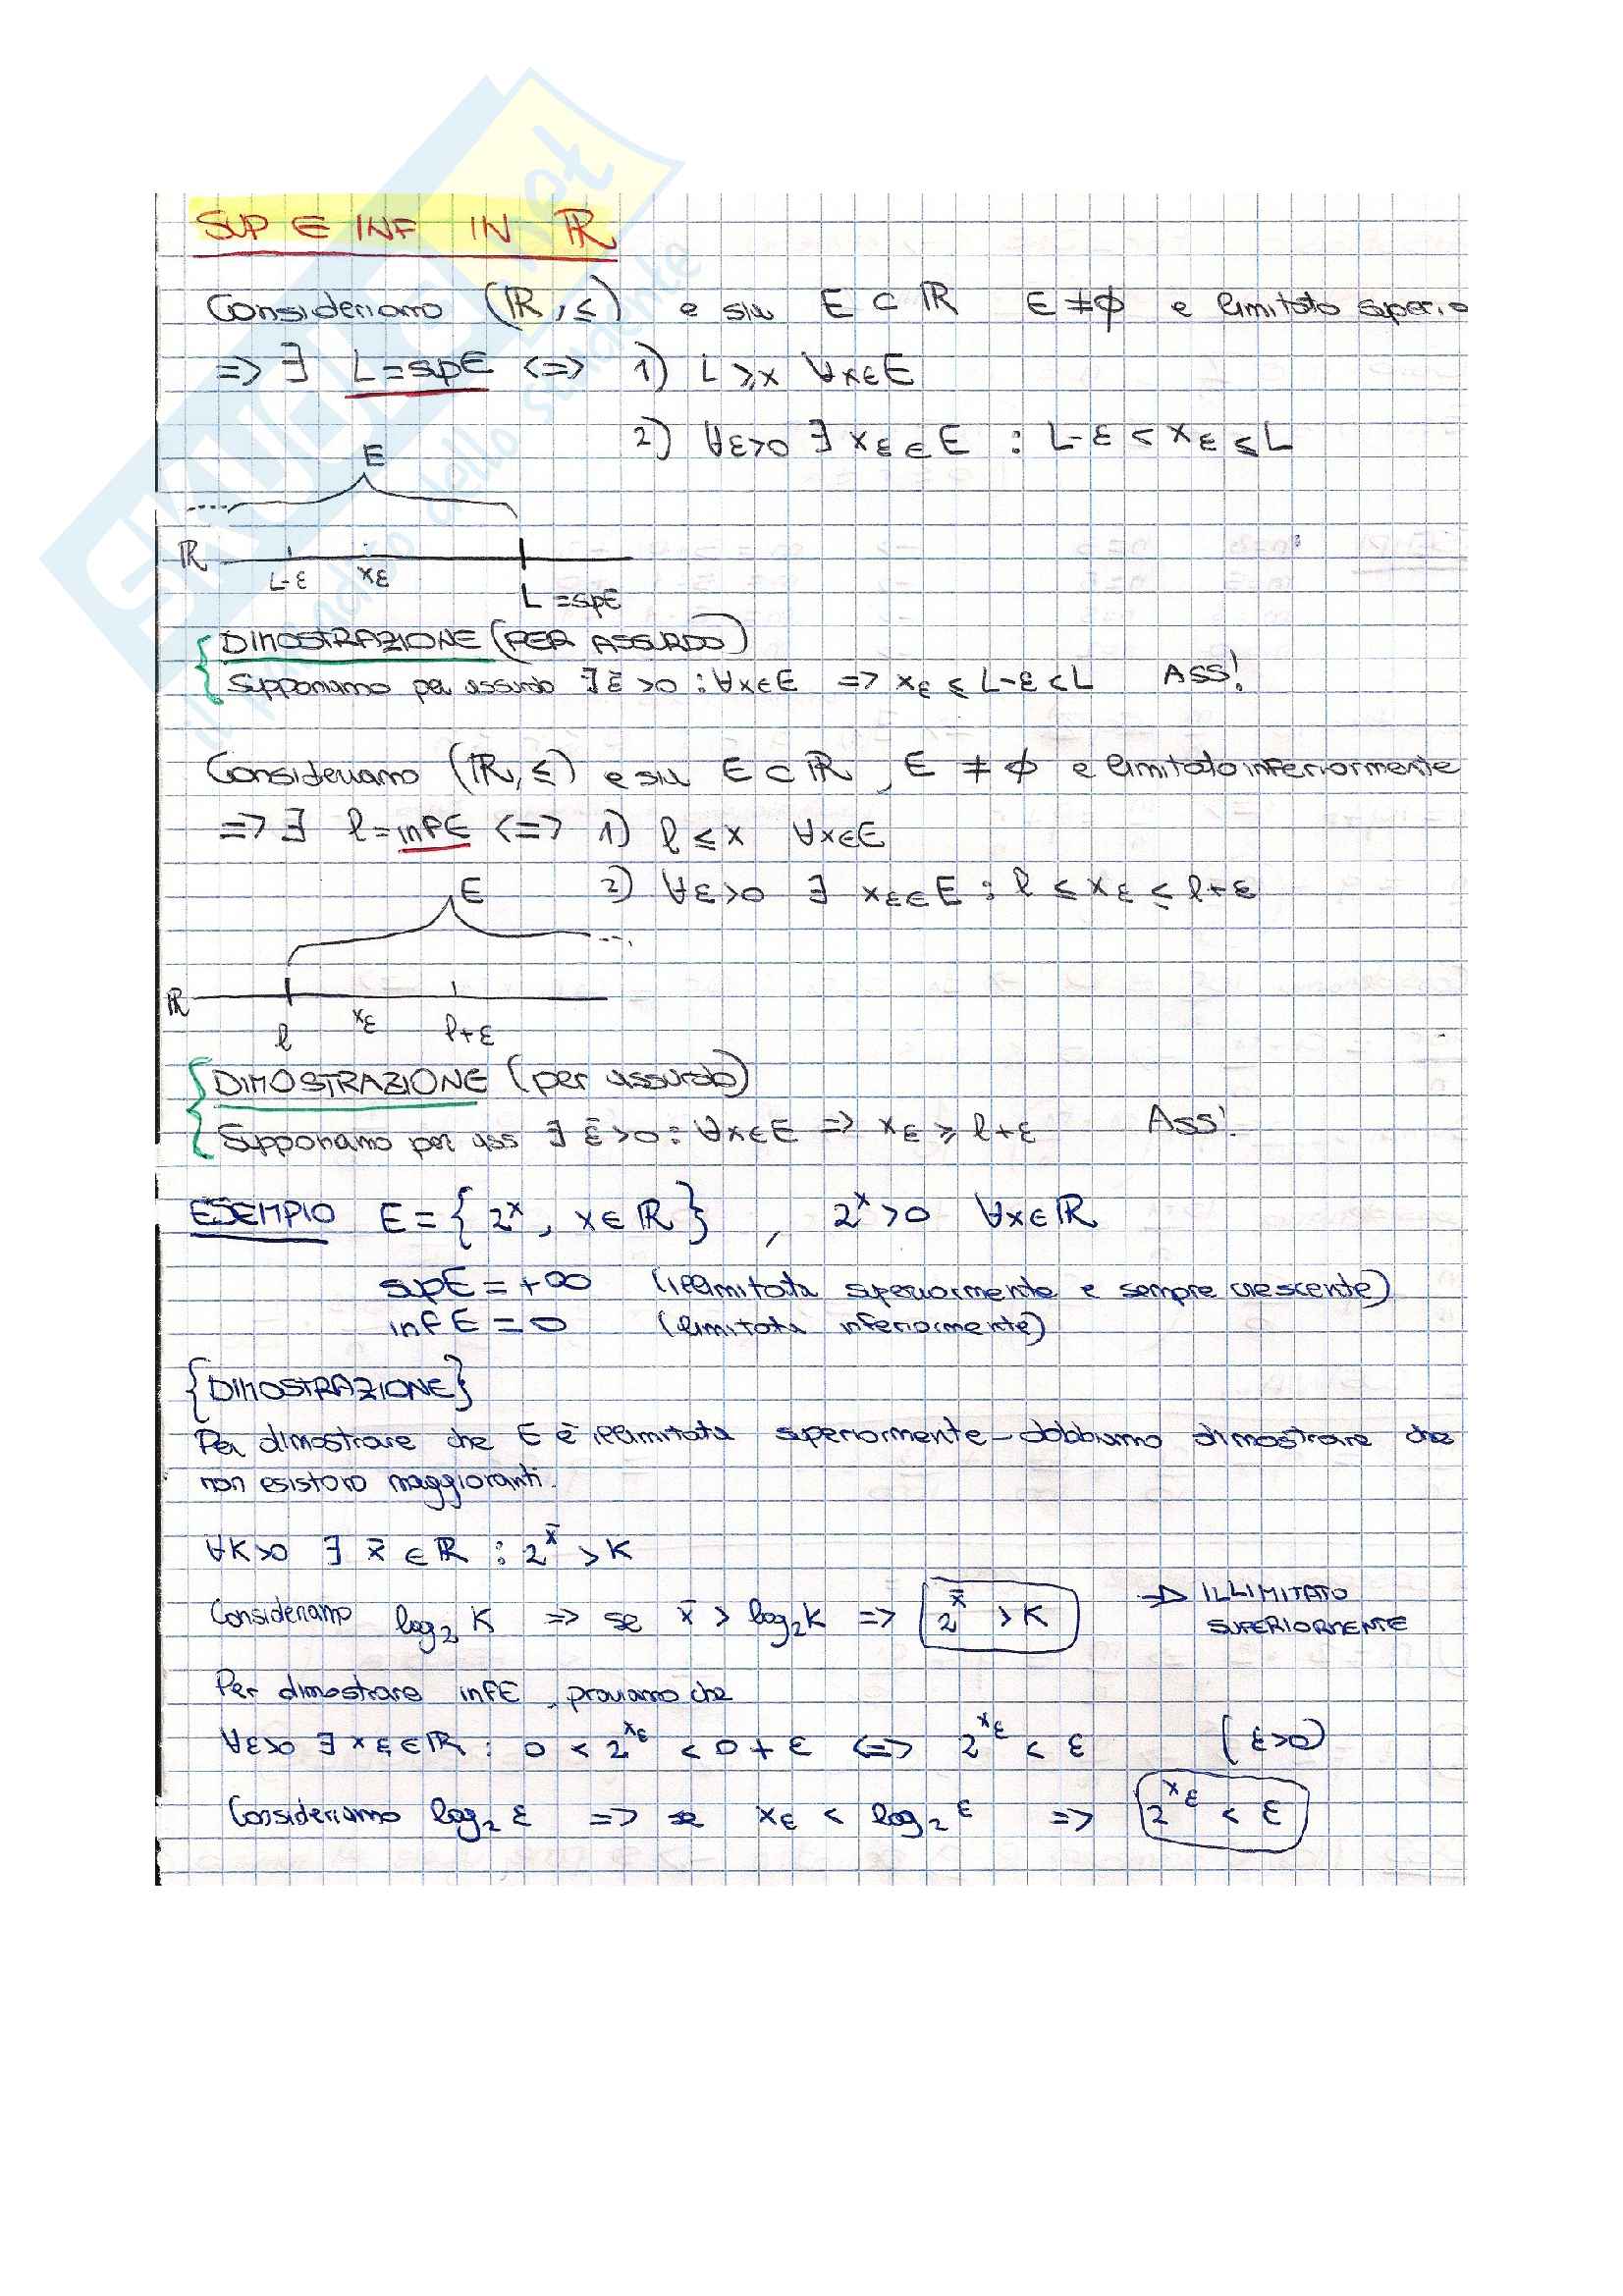 SUP E INF IN ℝ
Consideriamo (ℝ, ≤) e sia E ⊂ ℝ E ≠ ∅ e limitato super.
=> ∃ L = supE <=> 1) L ≥ x ∀x∈E
2) ∀ε>0 ∃ xε ∈ E : L-ε < xε ≤ L
E
ℝ L-ε xε L = supE
DIMOSTRAZIONE (PER ASSURDO)
Supponiamo per assurdo ∃ ε̄ >0 : ∀x∈E => xε ≤ L-ε < L Ass!
Consideriamo (ℝ, ≤) e sia E ⊂ ℝ, E ≠ ∅ e limitato inferiormente
=> ∃ l = infE <=> 1) l ≤ x ∀x∈E
2) ∀ε>0 ∃ xε∈E : l ≤ xε ≤ l+ε
E
ℝ l xε l+ε
DIMOSTRAZIONE (per assurdo)
Supponiamo per ass ∃ ε̄ >0 : ∀x∈E => xε ≥ l+ε Ass!
ESEMPIO E = {2^x, x∈ℝ} , 2^x >0 ∀x∈ℝ
supE = +∞ (illimitata superiormente e sempre crescente)
infE = 0 (limitata inferiormente)
{DIMOSTRAZIONE}
Per dimostrare che E è illimitata superiormente - dobbiamo dimostrare che
non esistono maggioranti.
∀K>0 ∃ x̄ ∈ ℝ : 2^x̄ > K
Consideriamo log₂ K => se x̄ > log₂K => 2^x̄ > K → ILLIMITATO
SUPERIORMENTE
Per dimostrare infE, proviamo che
∀ε>0 ∃ xε∈ℝ : 0 < 2^xε < 0 + ε <=> 2^xε < ε (ε>0)
Consideriamo log₂ ε => se xε < log₂ ε => 2^xε < ε